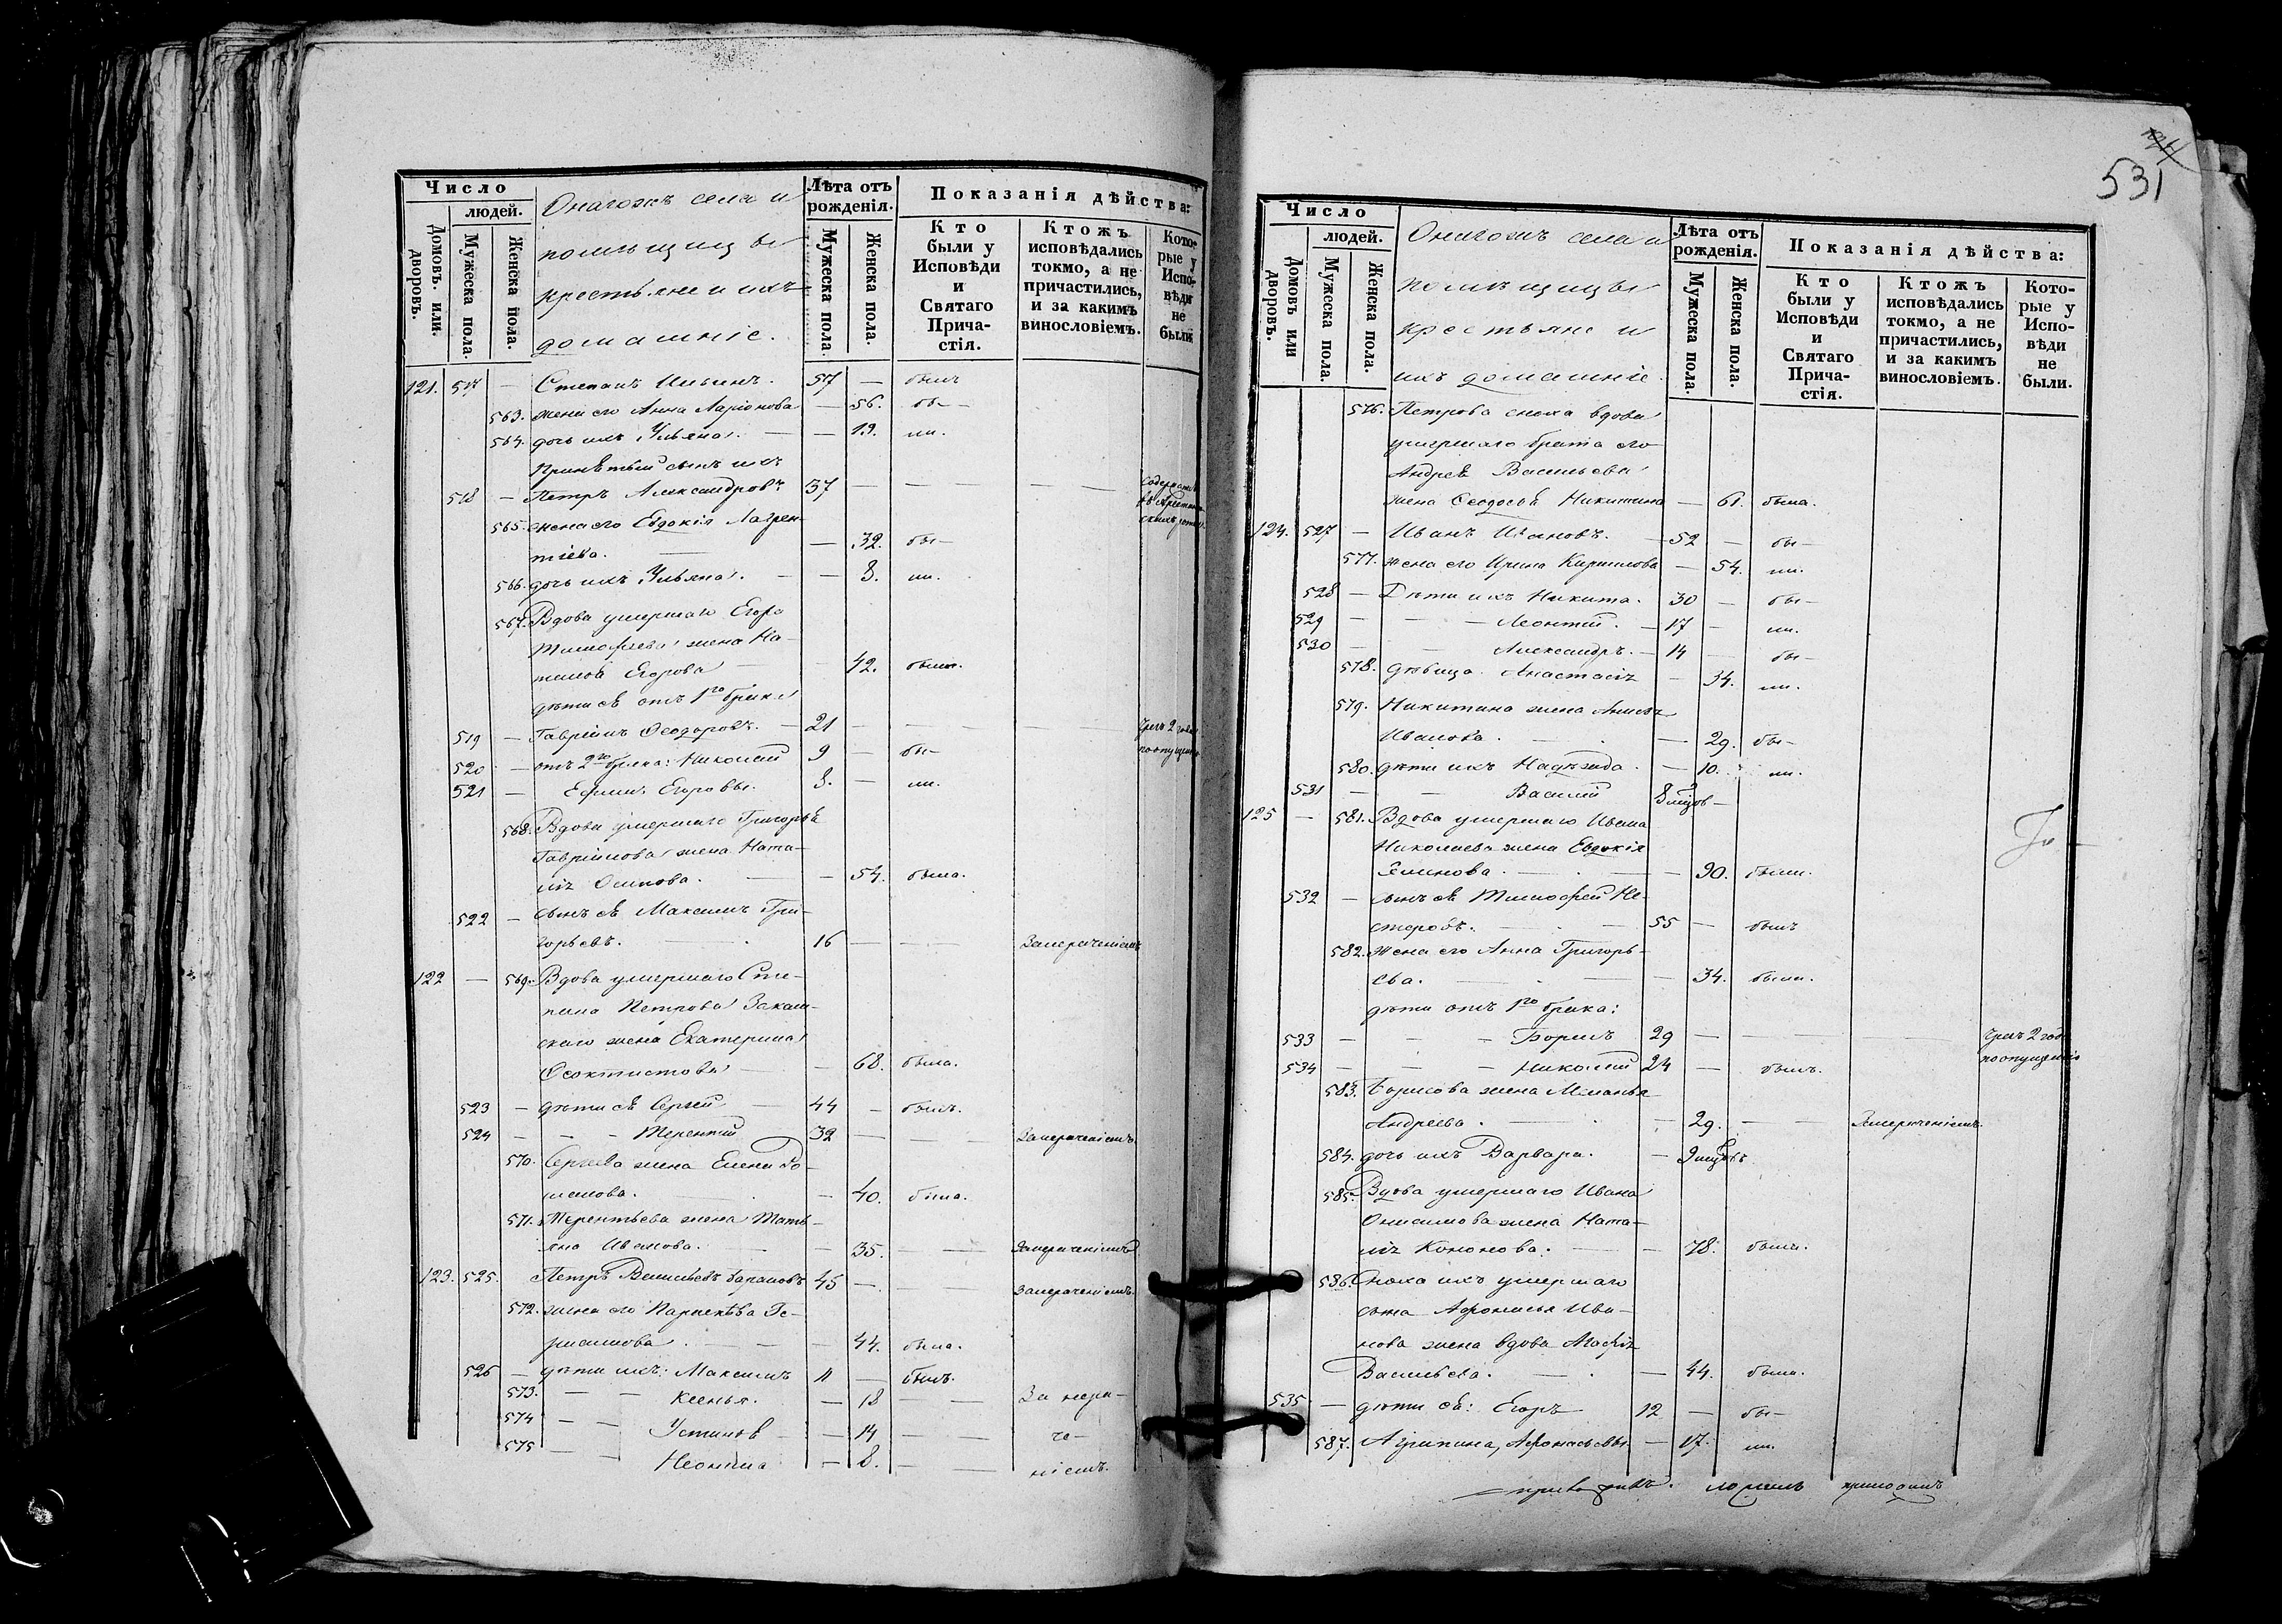 Число
людей.
Домовъ. или. дворовъ.
Мужеска пола.
Женска пола.
Онагожъ села и
помѣщицы
крестьяне и ихъ
домашніе.
Лѣта отъ
рожденія.
Мужеска пола.
Женска пола.
Показанія дѣйства:
Кто
были у
Исповѣди
и
Святаго
Прича-
стія.
Ктожъ
исповѣдались
токмо, а не
причастились,
и за какимъ
винословіемъ.
Кото-
рые у
Испо-
вѣди
не
были
121. 517 — Степанъ Ильинъ. 57 — былъ
563. жена его Анна Ларіонова — 56. бы—
564. дочь ихъ Ульяна. — — 19. ли.
Принятый сынъ ихъ
518 — Петръ Александровъ 37 — — — — —
565. жена его Евдокія Лаврен-
тіева. — — 32. бы—
566. дочь ихъ Ульяна. — — 8. ли.
567. Вдова умершаго Егора
Тимофеева жена На-
талія Егорова — 42. была.
дѣти ея отъ 1го брака
519 — Гавріилъ Ѳеодоровъ. — 21 — — — — чрез 2 года
520 — отъ 2го брака: Николай 9 — бы— по опущенію
521 — Ефимъ Егоровы. 8. — ли.
568. Вдова умершаго Григорья
Гаврилова жена Ната-
лія Осипова. — — 54. была.
522 — сынъ ея Максимъ Гри-
горьевъ. — 16 — — За нераченіемъ
122 — 569. Вдова умершаго Сте-
пана Петрова
жена Екатерина
Ѳеоктистова — — 68. была.
523 — дѣти ея Сергей — 44 — былъ.
524 — — — Терентій 32 — — За нераченіемъ.
570. Сергеева жена Елена Ро-
манова. — — 40. была.
571. Терентьева жена Тать-
яна Иванова. — — 35. — — За нераченіемъ
123. 525. Петръ Васильевъ Барановъ 45 — — За нераченіемъ.
572. жена его Параскѣва Ге-
расимова. — — 44. была.
526 — дѣти ихъ: Максимъ 11 — былъ.
573. — — Ксенья. — 18 — — За нера-
574 — — Устинья — — 14 — — че-
575 — — Неонила — 8. — — ніемъ.
531
Число
людей.
Домовъ или дворовъ.
Мужеска пола.
Женска пола.
Онагожъ села и
помѣщицы
крестьяне и
ихъ домашніе.
Лѣта отъ
рожденія.
Мужеска пола.
Женска пола.
Показанія дѣйства:
Кто
были у
Исповѣди
и
Святаго
Прича-
стія.
Ктожъ
исповѣдались
токмо, а не
причастились,
и за какимъ
винословіемъ.
Кото-
рые у
Испо-
вѣди
не
были.
576. Петрова сноха вдова
умершаго брата его
Андрея Васильева
жена Ѳеодосья Никитина — 61. была.
124. 527 — Иванъ Ивановъ. — 52 — бы—
577. жена его Ирина Кирилова — 54. ли.
528 — Дѣти ихъ Никита. 30 — бы—
529 — — — Леонтій. — 17 — ли.
530 — — Александръ. — 14 — бы—
578. дѣвица. Анастасія — 34. ли.
579. Никитина жена Анисья
Иванова. — — 29. бы—
580. дѣти ихъ Надежда. — 10. ли.
531 — — Василій 8 мцовъ —
125 — 581. Вдова умершаго Ивана
Николаева жена Евдокія
Яковлева. — — 90. была.
532 — сынъ ея Тимофей Не-
стеровъ. — — 55 — былъ
582. жена его Анна Григорь-
ева. — — 34. была.
дѣти отъ 1го брака:
533 — — — Борисъ 29 — — — — чрез 2 года
534 — — — Николай 24 — былъ. по опущенію
583. Борисова жена Меланья
Андреева. — — 29. — — За нераченіемъ.
584. дочь ихъ Варвара. — 9 мцовъ
585. Вдова умершаго Ивана
Онисимова жена Ната-
лія Кононова. — — 78. была.
586. Сноха ихъ умершаго
сына Афонасья Ива-
нова жена вдова Агафія
Васильева. — — 44. была.
535 — дѣти ея: Егоръ 12 — бы—
587. Агрипина, Афонасьевы — 17. ли.